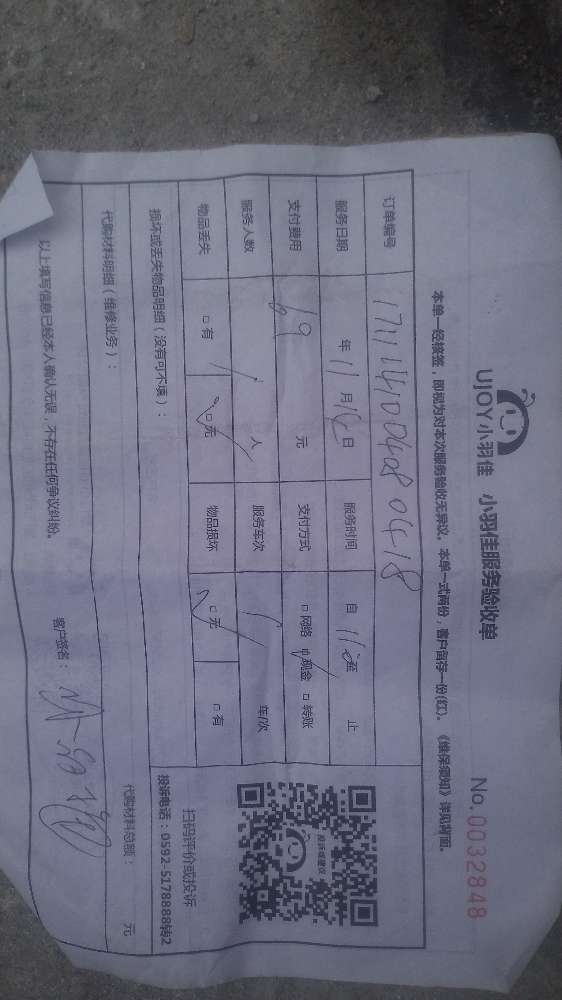 UJOY小羽佳 小羽佳服务验收单 No.0032848
本单一经核签，即视为对本次服务验收无异议。本单一式两份，客户留存一份(红)。《维保须知》详见背面。
订单编号 171114100408 0418
服务日期 年 11 月 14 日 服务时间 自 11 至 止
支付费用 69 元 支付方式 □网络 □现金 □转账
服务人数 1 人 服务车次 车/次
物品丢失 □有 □无 物品损坏 □无 □有
投诉或建议
扫码评价或投诉
投诉电话：0592-5178888转2
损坏或丢失物品明细（没有可不填）：
代购材料明细（维修业务）： 代购材料总额： 元
以上填写信息已经本人确认无误，不存在任何争议纠纷。 客户签名：